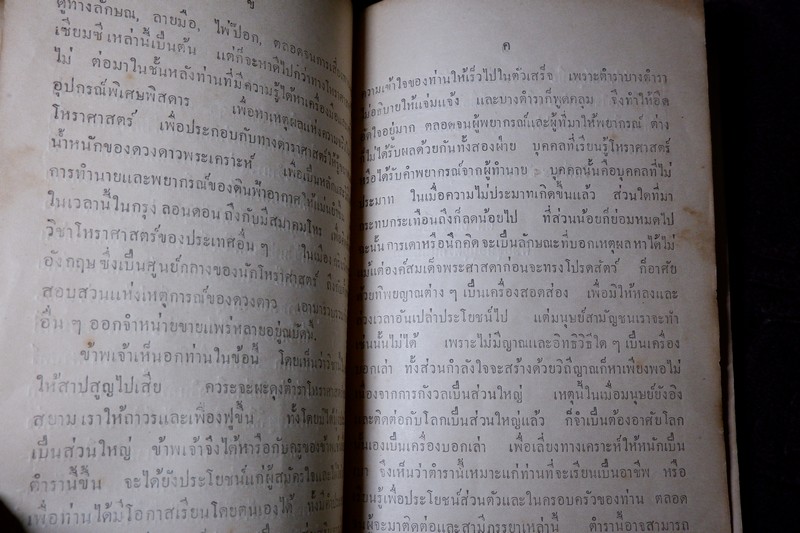 ข
ดูทางลักษณ, ลายมือ, ไพ่ป๊อก, ตลอดจนการเสี่ยง
เซียมซีเหล่านี้เป็นต้น แต่ก็จะหาดีไปกว่าทางโหราศา
ไม่ ต่อมาในชั้นหลังท่านที่มีความรู้ได้หาเครื่องมือ
อุปกรณ์พิเศษพิสดาร เพื่อหาเหตุผลแห่งความ
โหราศาสตร์ เพื่อประกอบกับทางดาราศาสตร์ให้รู้
น้ำหนักของดวงดาวพระเคราะห์ เพื่อเป็นหลัก
การทำนายและพยากรณ์ของดินฟ้าอากาศให้แม่นยำ
ในเวลานี้ในกรุงลอนดอน ถึงกับมีสมาคมโหร
วิชาโหราศาสตร์ของประเทศอื่น ๆ ในเมือง
อังกฤษซึ่งเป็นศูนย์กลางของนักโหราศาสตร์
สอบสวนแห่งเหตุการณ์ของดวงดาว
อื่น ๆ ออกจำหน่ายขายแพร่หลายอยู่ณบัดนี้
ข้าพเจ้าเห็นอกท่านในข้อนี้ โดยเห็นว่าวิชา
ให้สาปสูญไปเสีย ควรจะผะดุงตำราโหราศาส
สยามเราให้ถาวรและเฟื่องฟูขึ้น ทั้งโดยมี
เป็นส่วนใหญ่ ข้าพเจ้าจึงได้หารือกับครูของข้าพเจ้า
ตำรานี้ขึ้น จะได้ยังประโยชน์แก่ผู้สมัครใจและ
เพื่อท่านได้มีโอกาสเรียนโดยตนเองได้
ค
ความเข้าใจของท่านให้เร็วไปในตัวเสร็จ เพราะตำราบางตำรา
ไม่อธิบายให้แจ่มแจ้ง และบางตำราก็พูดคลุม จึงทำให้อึด
อัดใจอยู่มาก ตลอดจนผู้พยากรณ์และผู้ที่มาให้พยากรณ์ ต่าง
ก็ไม่ได้รับผลด้วยกันทั้งสองฝ่าย บุคคลที่เรียนรู้โหราศาสตร์
หรือได้รับคำพยากรณ์จากผู้ทำนาย บุคคลนั้นคือบุคคลที่ไม่
ประมาท ในเมื่อความไม่ประมาทเกิดขึ้นแล้ว ส่วนใดที่มา
กระทบกระเทือนถึงก็ลดน้อยไป ที่ส่วนน้อยก็ย่อมหมดไป
ฉะนั้นการเดาหรือนึกคิดจะเป็นลักษณะที่บอกเหตุผลหาได้ไม่
แม้แต่องค์สมเด็จพระศาสดาก่อนจะทรงโปรดสัตว์ ก็อาศัย
ด้วยทิพยญาณต่าง ๆ เป็นเครื่องสอดส่อง เพื่อมิให้หลงและ
ล่วงเวลาอันเปล่าประโยชน์ไป แต่มนุษย์สามัญชนเราจะทำ
เช่นนั้นไม่ได้ เพราะไม่มีญาณและอิทธิวิธีใด ๆ เป็นเครื่อง
บอกเล่า ทั้งส่วนกำลังใจจะสร้างด้วยวิถีญาณก็หาเพียงพอไม่
เนื่องจากการกังวลเป็นส่วนใหญ่ เหตุนี้ในเมื่อมนุษย์ยังอิง
และติดต่อกับโลกเป็นส่วนใหญ่แล้ว ก็จำเป็นต้องอาศัยโลก
นั้นเองเป็นเครื่องบอกเล่า เพื่อเลี่ยงทางเคราะห์ให้หนักเป็น
จึงเห็นว่าตำรานี้เหมาะแก่ท่านที่จะเรียนเป็นอาชีพ หรือ
เรียนรู้เพื่อประโยชน์ส่วนตัวและในครอบครัวของท่าน ตลอด
จนผู้จะมาติดต่อและสามีภรรยาเหล่านี้ ตำรานี้อาจสามารถ